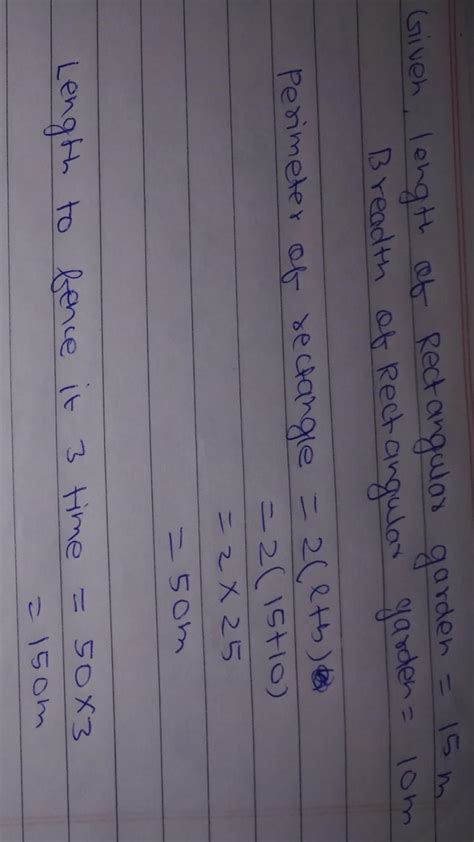 Given, length of Rectangular garden = 15m
Breadth of Rectangular garden = 10m
Perimeter of rectangle = 2(l+h)
= 2(15+10)
= 2×25
= 50m
Length to fence it 3 time = 50×3
= 150m